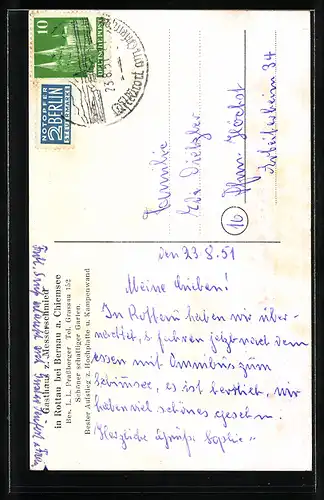 10
DEUTSCHE POST
NOTOPFER
2 BERLIN
STEUERMARKE
23.8.
Familie
Pfgm. Höchst
Arbeiterheim 34
16
den 23.8.51
Meine Lieben!
In Rottau haben wir über-
nachtet, fahren jetzt nach dem
essen mit Omnibus zum
Chiemsee, es ist herrlich, wir
haben viel schönes gesehen.
Herzliche Grüße Sophie
Gasthaus z. Messerschmied
in Rottau bei Bernau a. Chiemsee
Bes. L. L. Praßberger Tel. Grassau 152
Schöner schattiger Garten.
Bester Aufstieg z. Hochplatte u. Kampenwand